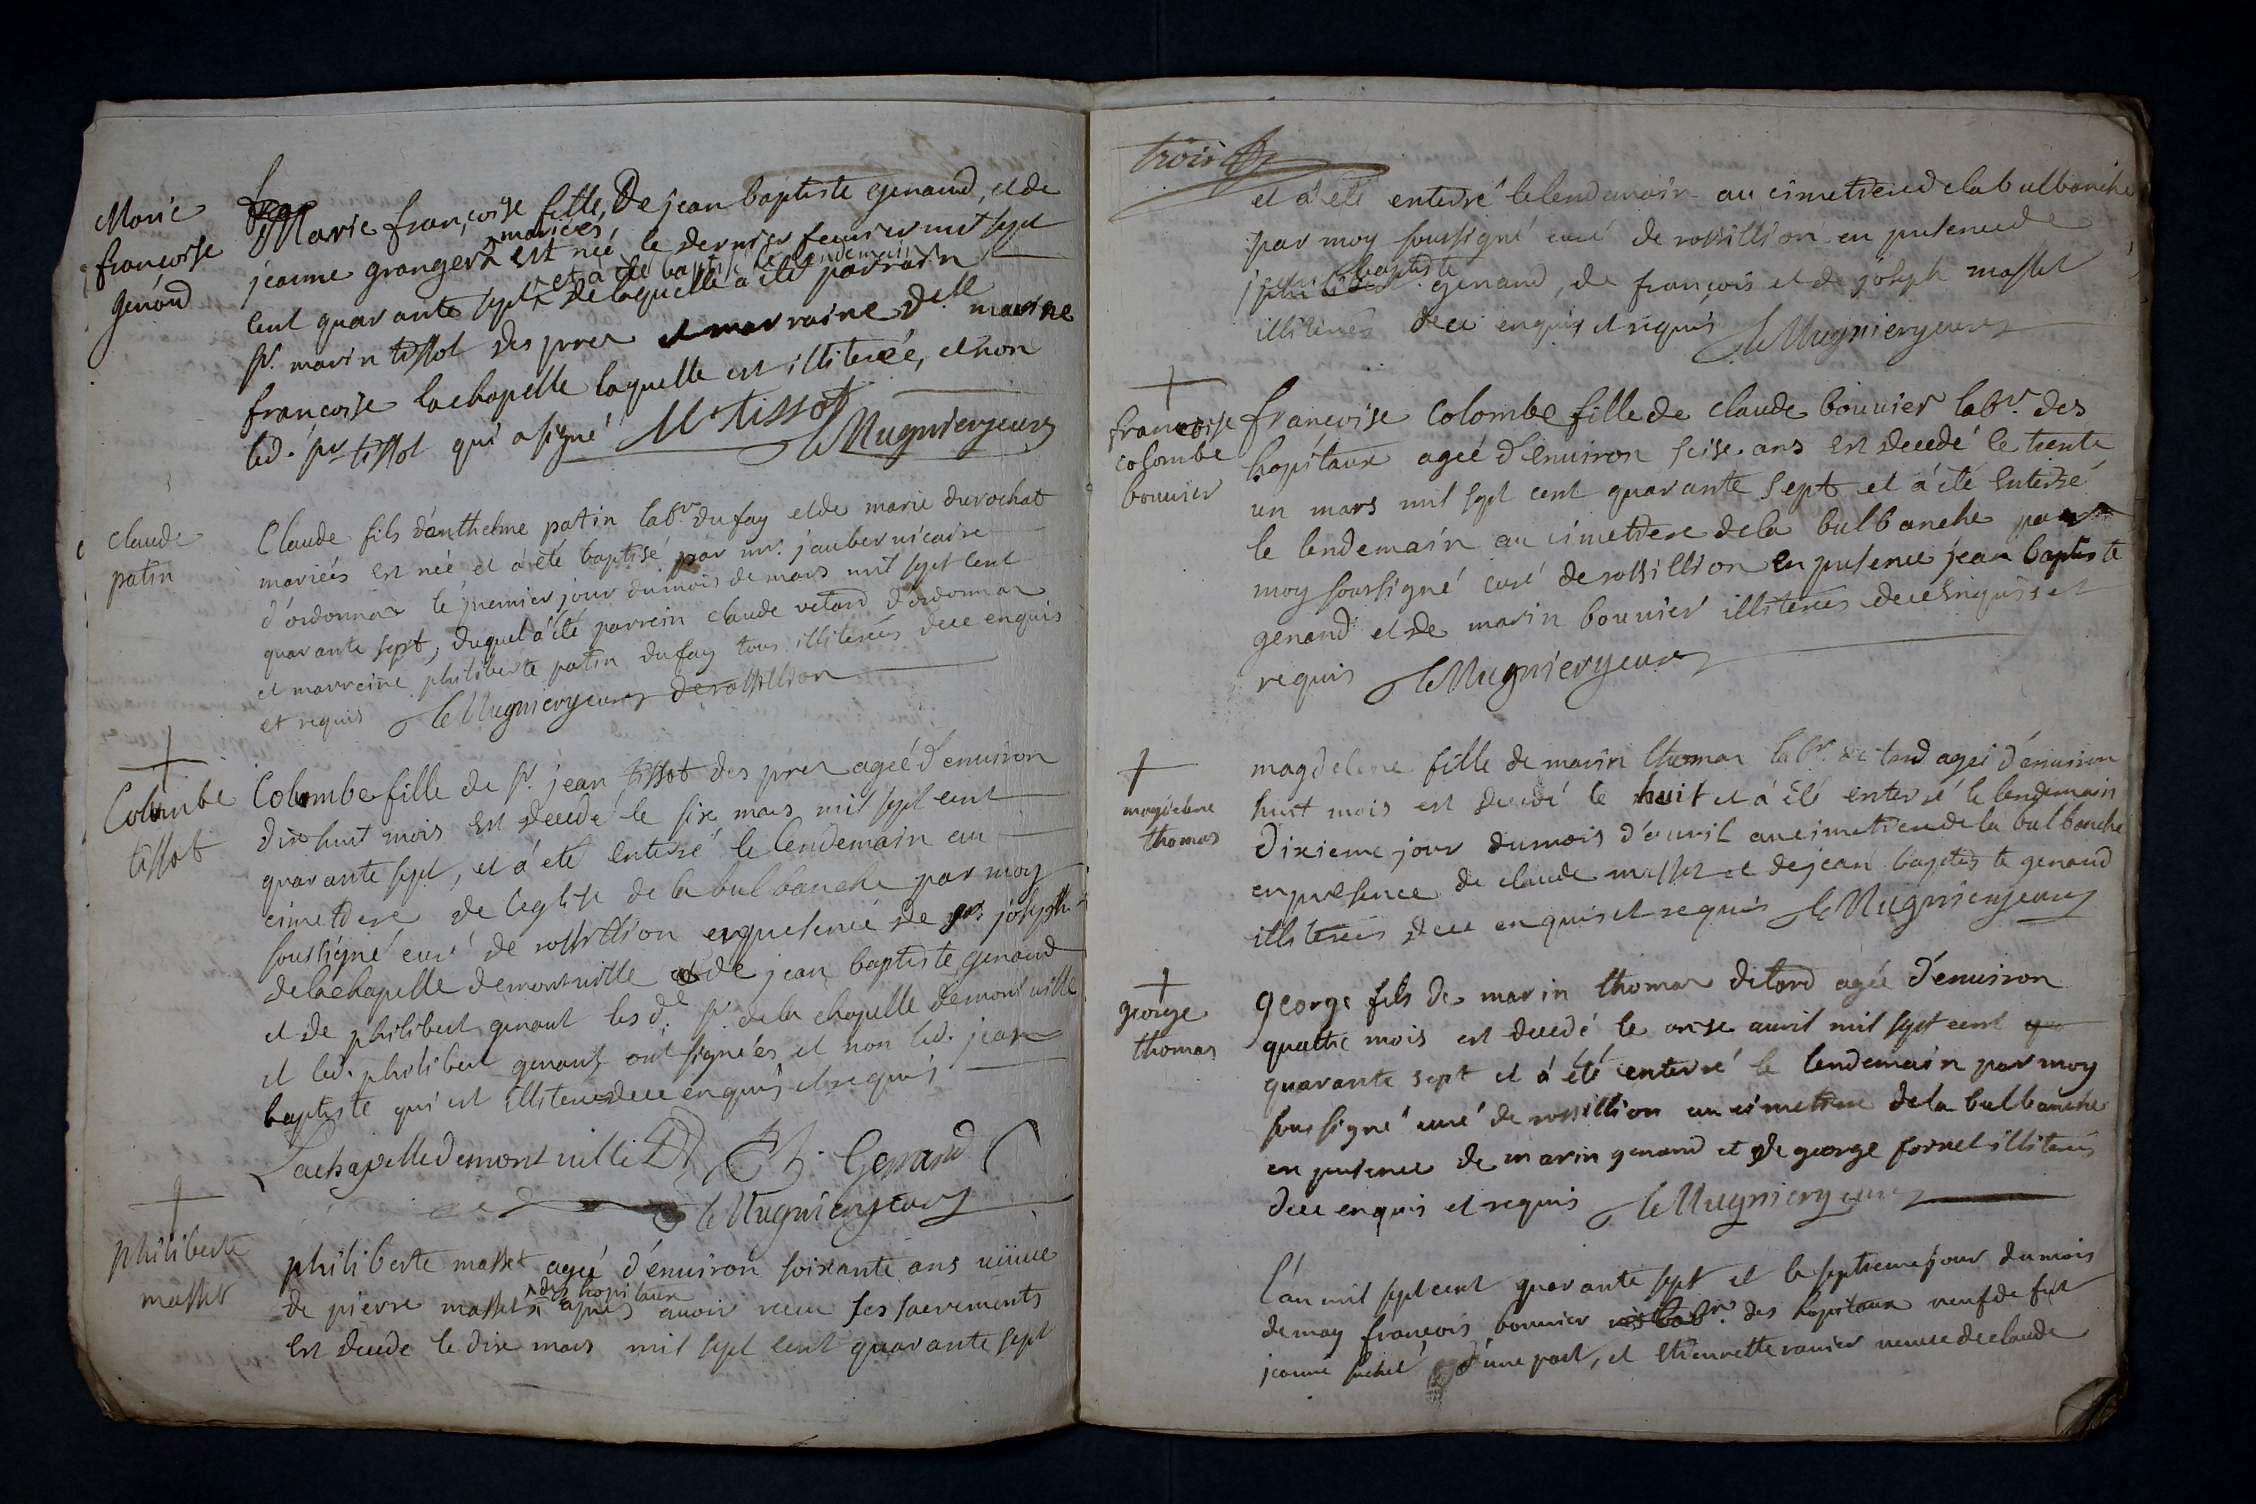 Marie
francoise
genoud
Marie françoise fille, De jean baptiste genaud, et de
jeanne granger mariées est née le dernier feurier mil sept
cent quarante sept et a été baptisé le lendemain de laquelle a été parrain
sr. marin tissot des prez et marraine delle marine
francoise lachapelle laquelle est illiterée, et non
led. sr tissot qui a signé M tissot
le Mugnier jeune
claude
patin
Claude fils d'anthelme patin labr. du fay et de marie durochat
mariées est née et a été baptisé par mr. jauber vicaire
d'ordonnaz le premier jour du mois de mars mil sept cent
quarante sept, duquel a été parrein claude vetard d'ordonnaz
et marreine philiberte patin du fay tous illiterées de ce enquis
et requis le Mugnier jeune de rossillion
Colombe
tissot
Colombe fille de sr. jean tissot des prez ageé d'enuiron
dix huit mois est decedé le six mars mil sept cent
quarante sept, et a été enterré le lendemain au
cimetiere de l'eglise de la bulbanche par moy
soussigné curé de rossillion en presence de sr. joseph
de lachapelle demontuille et de jean baptiste genaud
et de philibert genaut les de. sr. de la chapelle demontuille
et led. philibert genaut ont signées et non led. jean
baptiste qui est illiteré de ce enquis et requis
Lachapelle demontuille Ph. Genand
le Mugnier jeune
philiberte
masset
philiberte masset ageé d'enuiron soixante ans veuue
de pierre masset des hopitaux apres auoir receu ses sacrements
est decede le dix mars mil sept cent quarante sept
trois
et a été enterré le lendemain au cimetiere de la bulbanche
par moy soussigné curé de rossillion en presence de
jean baptiste genand, de françois et de joseph masset
illiterées de ce enquis et requis le Mugnier jeune
francoise
colombe
bouuier
francoise Colombe fille de claude bouuier labr. des
hopitaux ageé d'enuiron seise ans est decedé le trente
un mars mil sept cent quarante sept et a été enterré
le lendemain au cimetiere de la bulbanche par
moy soussigné curé de rossillion en presence jean baptiste
genand et de marin bouuier illiterées de ce enquis et
requis le Mugnier jeune
magdelene
thomas
magdelene fille de marin thomas labr. de tard ageé d'enuiron
huit mois est decedé le huit et a été enterré le lendemain
dixieme jour du mois d'auril au cimetiere de la bulbanche
en presence de claude masset et de jean baptiste genand
illiterées de ce enquis et requis le Mugnier jeune
george
thomas
george fils de marin thomas de tard agée d'enuiron
quattre mois est decedé le onse auril mil sept cent
quarante sept et a été enterré le lendemain par moy
soussigné curé de rossillion au cimetiere de la bulbanche
en presence de marin genand et de george fornel illiterées
de ce enquis et requis le Mugnier jeune
l'an mil sept cent quarante sept et le septieme jour du mois
de may françois bouuier des hopitaux veuf de fut
jeanne d'une part, et etiennette rauier veuue de claude